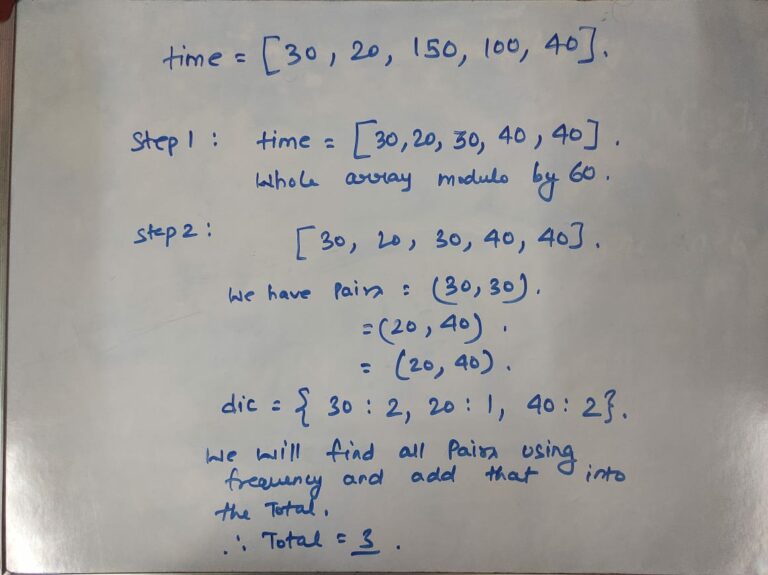 time = [30, 20, 150, 100, 40].
Step 1: time = [30, 20, 30, 40, 40].
Whole array modulo by 60.
Step 2: [30, 20, 30, 40, 40].
We have Pairs = (30, 30).
= (20, 40).
= (20, 40).
dic = { 30 : 2, 20 : 1, 40 : 2}.
We will find all Pairs using
frequency and add that into
the Total.
∴ Total = 3.